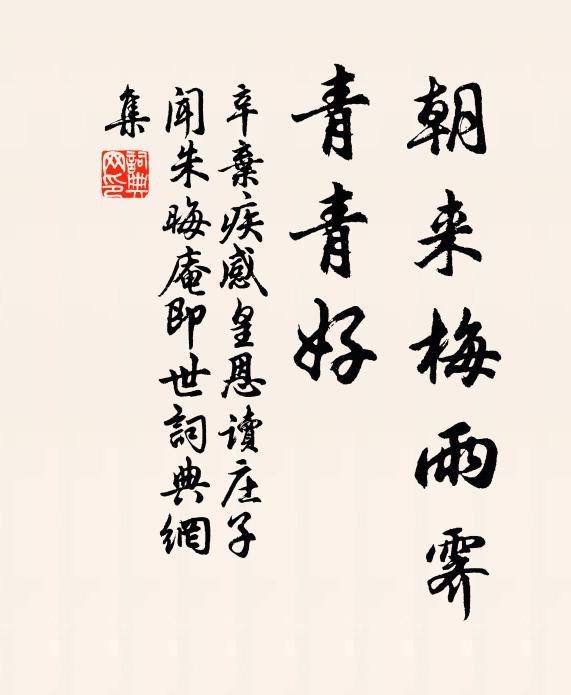 朝来梅雨霁
青青好
辛棄疾感皇恩讀庄子
聞朱晦庵即世詞典網
集
詞典网印